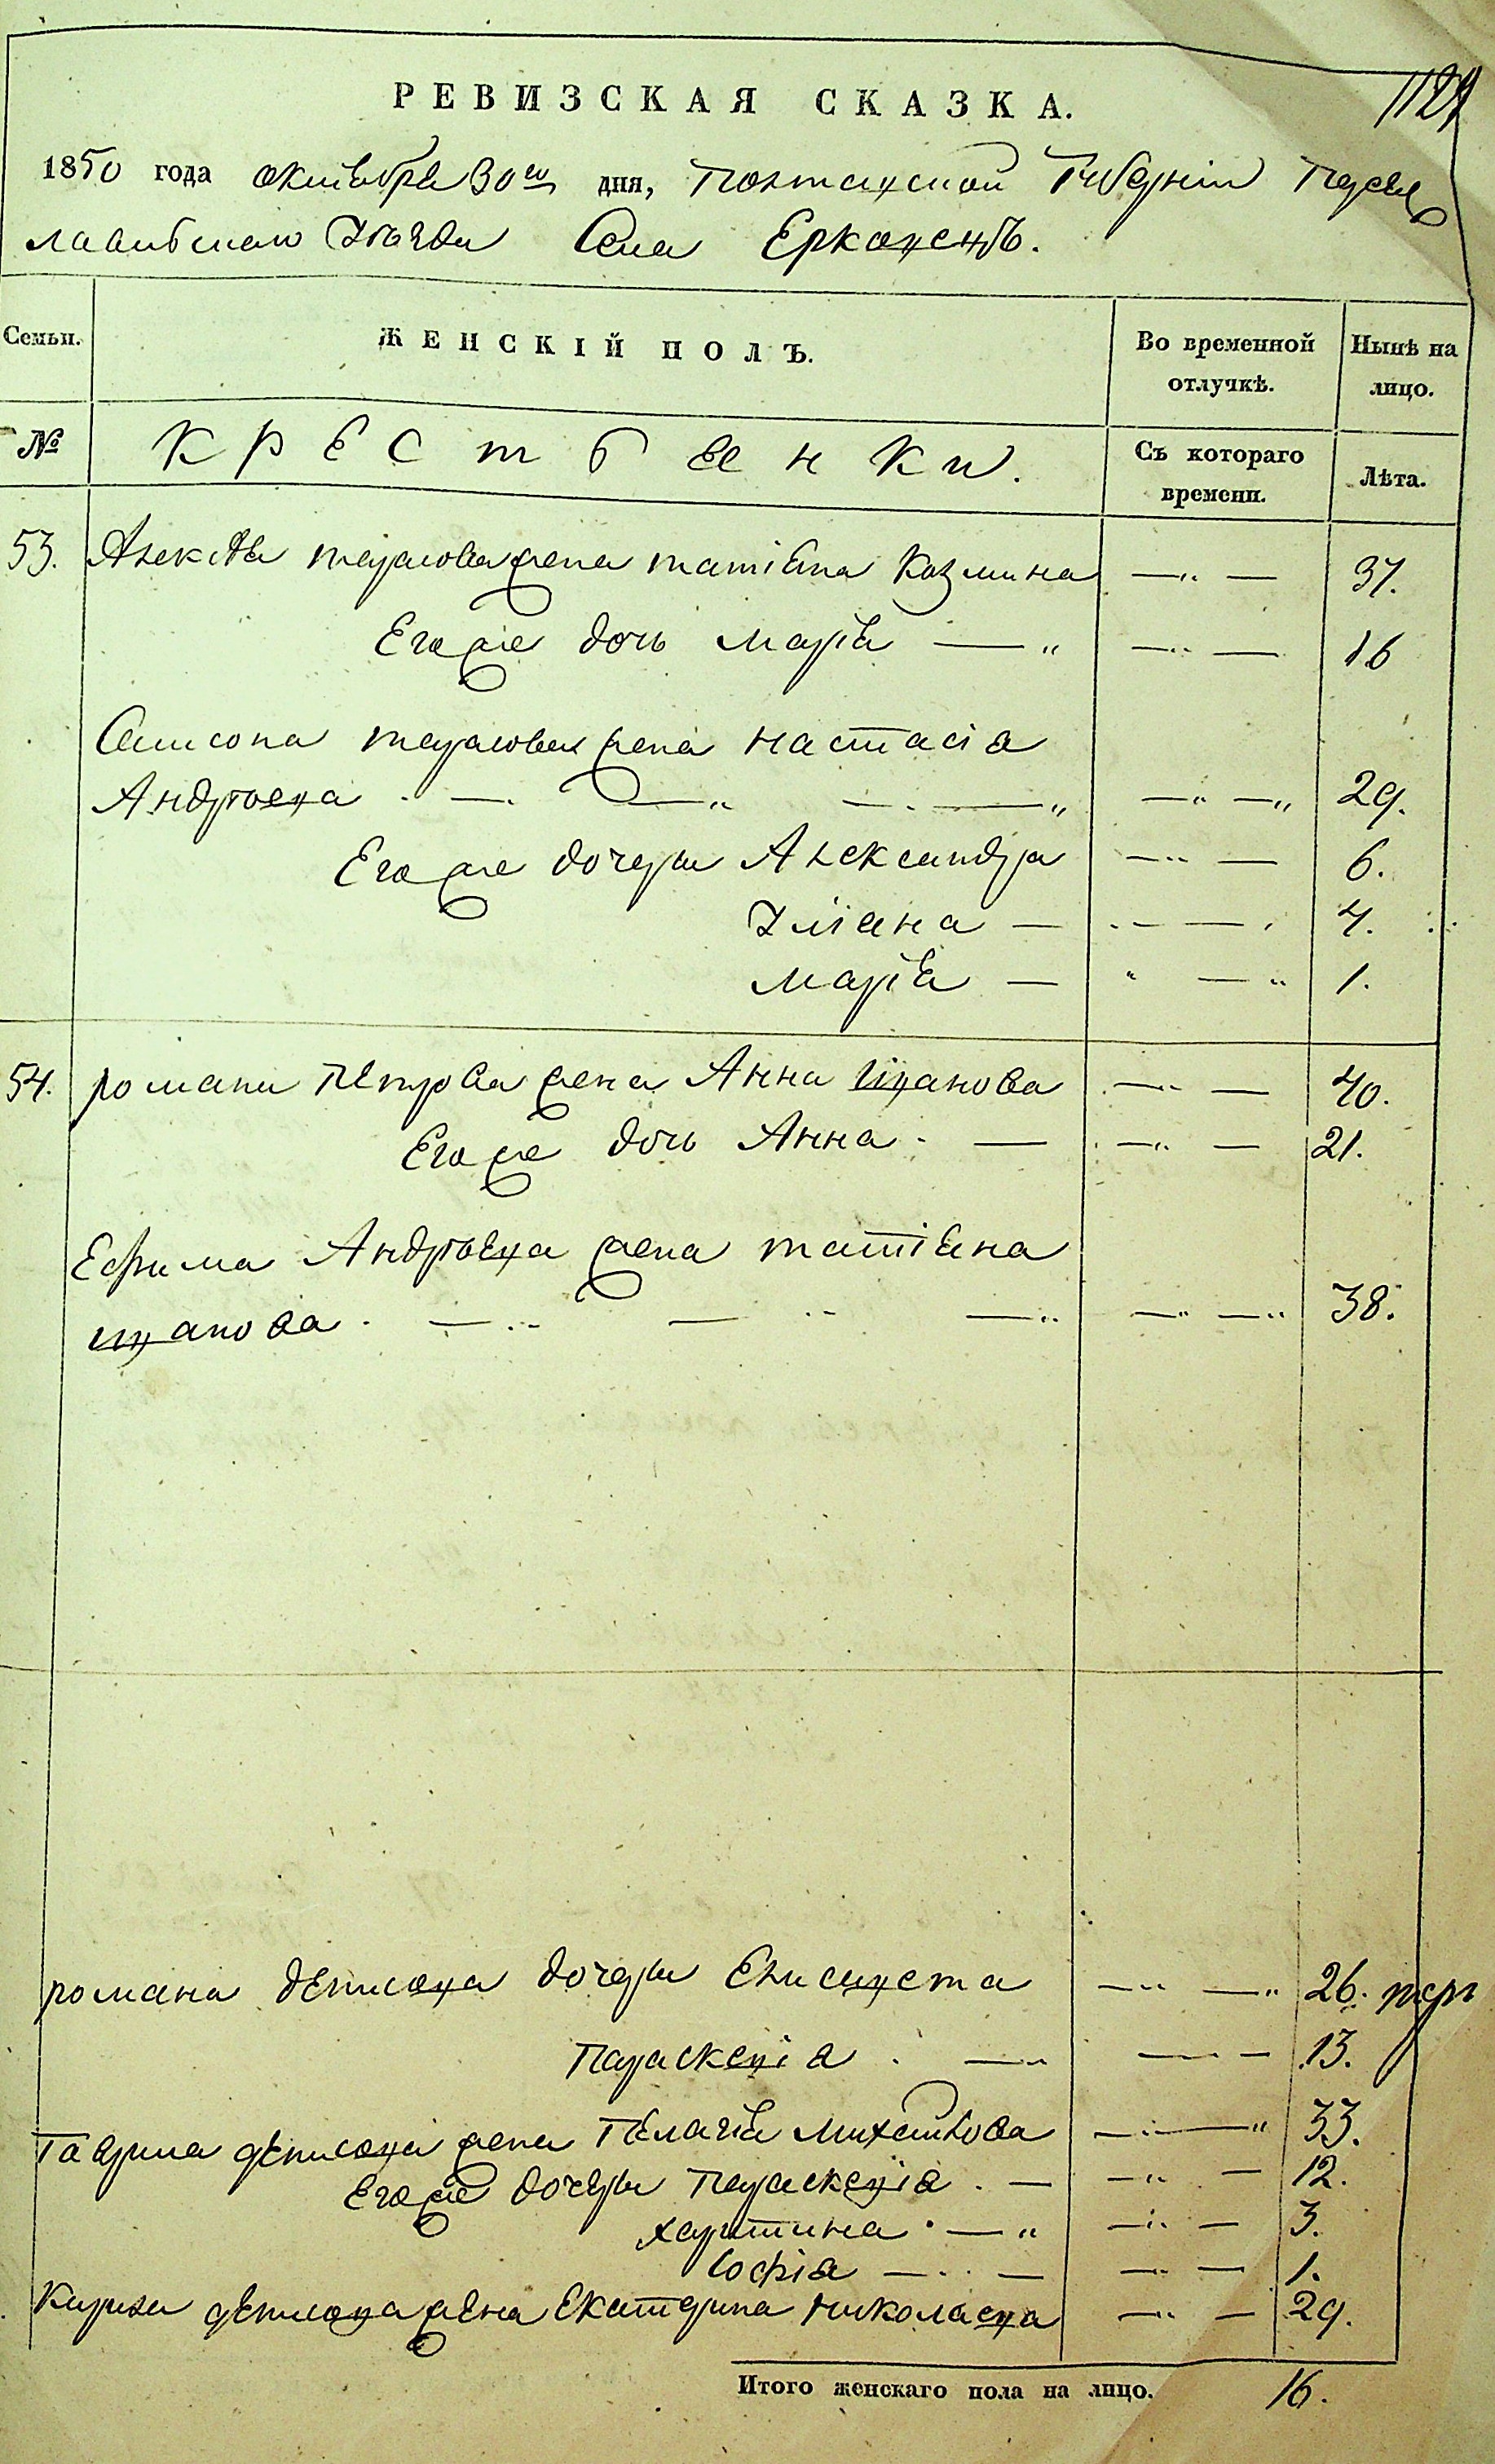 РЕВИЗСКАЯ СКАЗКА.
1850 года октября 30го дня, Полтавской Губерніи Переяс
лавского Уѣзда Села Ерковецъ.
Семьи. ЖЕНСКІЙ ПОЛЪ. Во временной отлучкѣ. Нынѣ на лицо.
№ Крестьянки. Съ котораго времени. Лѣта.
53. Алексѣя тарасова жена татіяна Козмина —"— 37.
Его же дочь марія —" —"— 16
Самсона тарасова жена настасіа
Андрѣева . —. —" —. —" —" —" 29.
Его же дочери Александра —"— 6.
Уліана — .— — . 4.
марія — " —" 1.
54. романа петрова жена Анна иванова .—"— 40.
Его же дочь Анна . — .—"— 21.
Ефима Андрѣева жена татіяна
иванова . —.. — .. —.. —" —" 38.
романа денисова дочери Елисавета —" —" 26.
параскевіа . —" —"— 13.
Гаврила денисова жена пелагія михайлова —.—" 33.
Его же дочери параскевіа . — —" — 12.
харитина . —" —" — 3.
софіа —..— —" — 1.
Кирила денисова жена Екатерина николаева —" — 29.
Итого женскаго пола на лицо. 16.